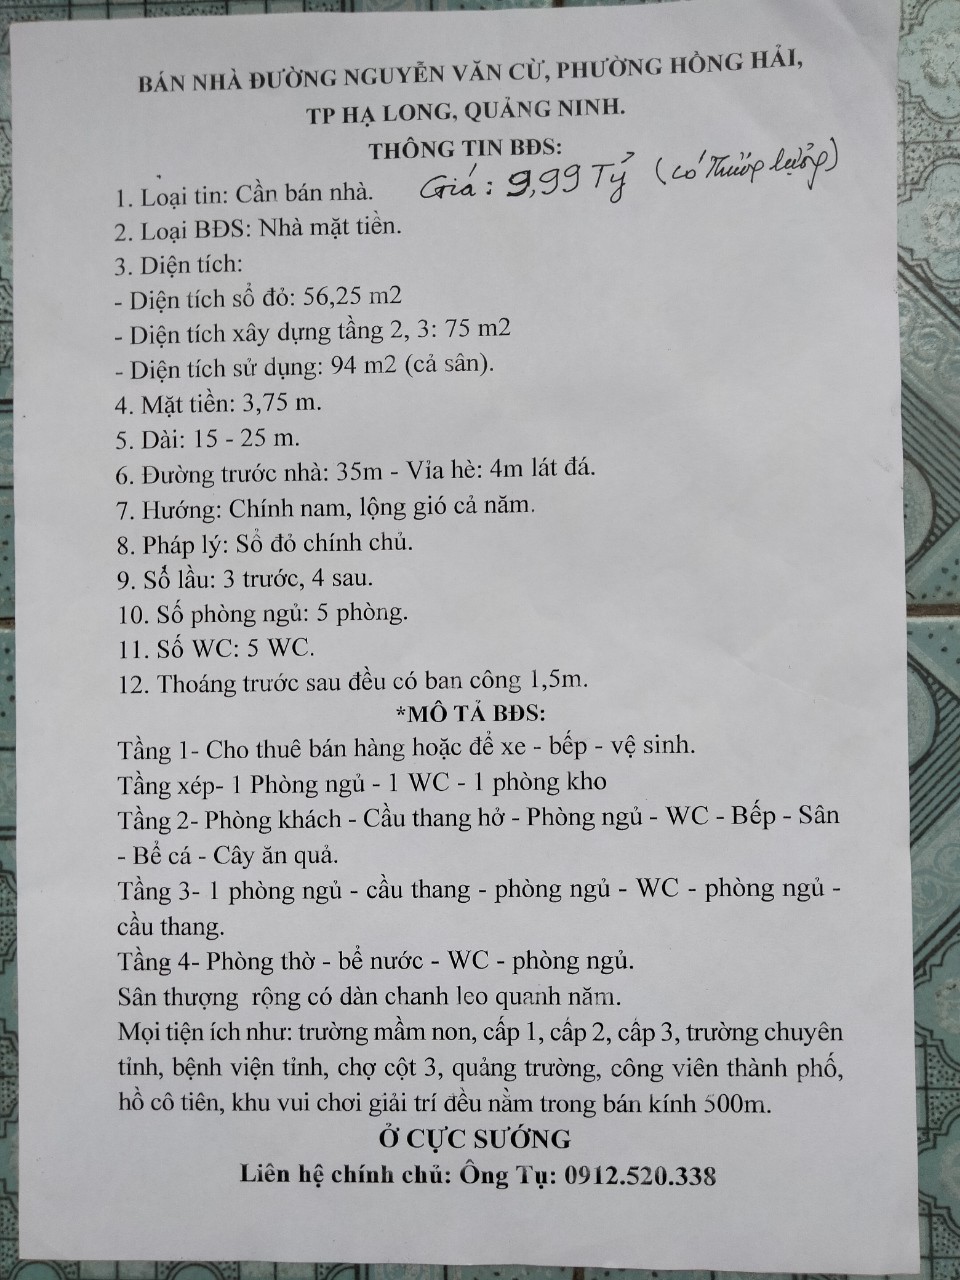 BÁN NHÀ ĐƯỜNG NGUYỄN VĂN CỪ, PHƯỜNG HỒNG HẢI,
TP HẠ LONG, QUẢNG NINH.
THÔNG TIN BĐS:
1. Loại tin: Cần bán nhà. Giá: 9,99 Tỷ (có thương lượng)
2. Loại BĐS: Nhà mặt tiền.
3. Diện tích:
- Diện tích sổ đỏ: 56,25 m2
- Diện tích xây dựng tầng 2, 3: 75 m2
- Diện tích sử dụng: 94 m2 (cả sân).
4. Mặt tiền: 3,75 m.
5. Dài: 15 - 25 m.
6. Đường trước nhà: 35m - Vỉa hè: 4m lát đá.
7. Hướng: Chính nam, lộng gió cả năm.
8. Pháp lý: Sổ đỏ chính chủ.
9. Số lầu: 3 trước, 4 sau.
10. Số phòng ngủ: 5 phòng.
11. Số WC: 5 WC.
12. Thoáng trước sau đều có ban công 1,5m.
*MÔ TẢ BĐS:
Tầng 1- Cho thuê bán hàng hoặc để xe - bếp - vệ sinh.
Tầng xép- 1 Phòng ngủ - 1 WC - 1 phòng kho
Tầng 2- Phòng khách - Cầu thang hở - Phòng ngủ - WC - Bếp - Sân
- Bể cá - Cây ăn quả.
Tầng 3- 1 phòng ngủ - cầu thang - phòng ngủ - WC - phòng ngủ -
cầu thang.
Tầng 4- Phòng thờ - bể nước - WC - phòng ngủ.
Sân thượng rộng có dàn chanh leo quanh năm.
Mọi tiện ích như: trường mầm non, cấp 1, cấp 2, cấp 3, trường chuyên
tỉnh, bệnh viện tỉnh, chợ cột 3, quảng trường, công viên thành phố,
hồ cô tiên, khu vui chơi giải trí đều nằm trong bán kính 500m.
Ở CỰC SƯỚNG
Liên hệ chính chủ: Ông Tụ: 0912.520.338